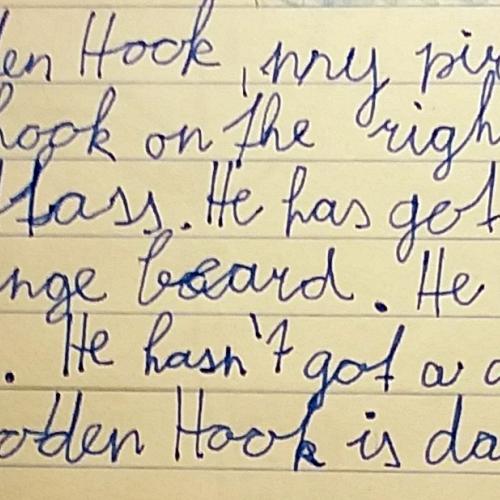 den Hook, my pir
hook on the righ
tlass. He has got
nge beard. He
. He hasn't got a d
odden Hook is da